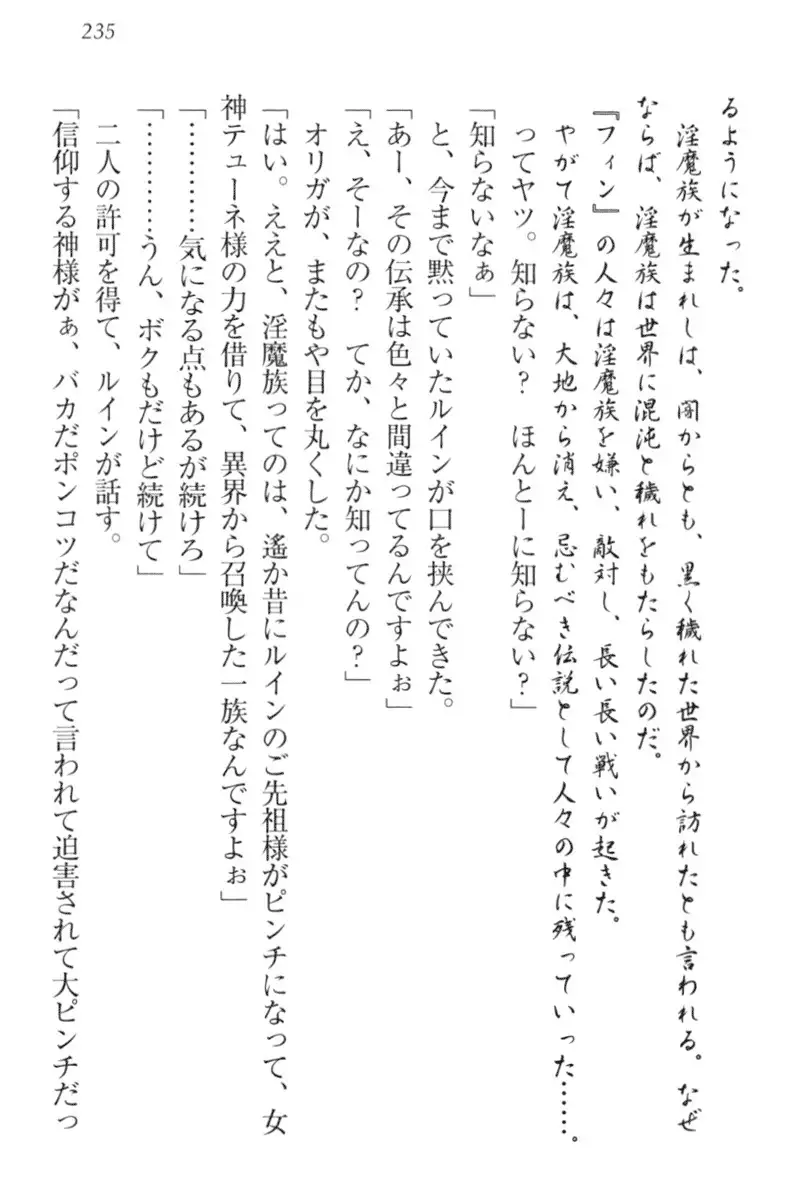 235
るようになった。
淫魔族が生まれしは、闇からとも、黒く穢れた世界から訪れたとも言われる。なぜ
ならば、淫魔族は世界に混沌と穢れをもたらしたのだ。
『フィン』の人々は淫魔族を嫌い、敵対し、長い長い戦いが起きた。
やがて淫魔族は、大地から消え、忌むべき伝説として人々の中に残っていった……。
ってヤツ。知らない？　ほんとーに知らない？」
「知らないなぁ」
と、今まで黙っていたルインが口を挟んできた。
「あー、その伝承は色々と間違ってるんですよぉ」
「え、そーなの？　てか、なにか知ってんの？」
オリガが、またもや目を丸くした。
「はい。ええと、淫魔族ってのは、遙か昔にルインのご先祖様がピンチになって、女
神テューネ様の力を借りて、異界から召喚した一族なんですよぉ」
「…………気になる点もあるが続けろ」
「…………うん、ボクもだけど続けて」
二人の許可を得て、ルインが話す。
「信仰する神様がぁ、バカだポンコツだなんだって言われて迫害されて大ピンチだっ